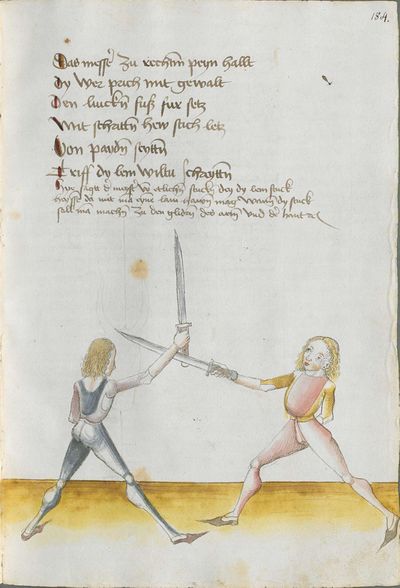 184.
Das messer zu rechtm peyn hallt
Dy wer prich mit gewalt
Den linckn fuß fur setz
Mit schrattn hew stich letz
Von paydn seyttn
Triff dy lem wiltu schreyttn
Hye sagt der messer von etlichn stuckn dy lem stuck
haysse da mit ma eyne lam hawen mag Wann dy stuck
soll ma machen zu den glidern des arm und der hant